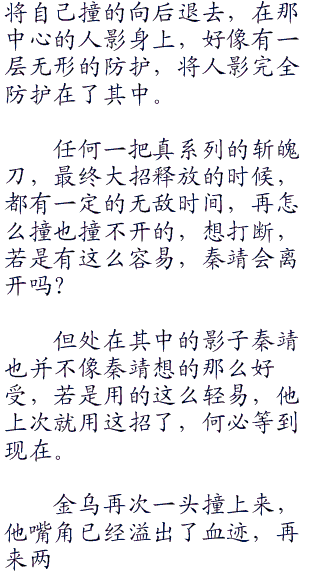 将自己撞的向后退去，在那
中心的人影身上，好像有一
层无形的防护，将人影完全
防护在了其中。
任何一把真系列的斩魄
刀，最终大招释放的时候，
都有一定的无敌时间，再怎
么撞也撞不开的，想打断，
若是有这么容易，秦靖会离
开吗？
但处在其中的影子秦靖
也并不像秦靖想的那么好
受，若是用的这么轻易，他
上次就用这招了，何必等到
现在。
金乌再次一头撞上来，
他嘴角已经溢出了血迹，再
来两